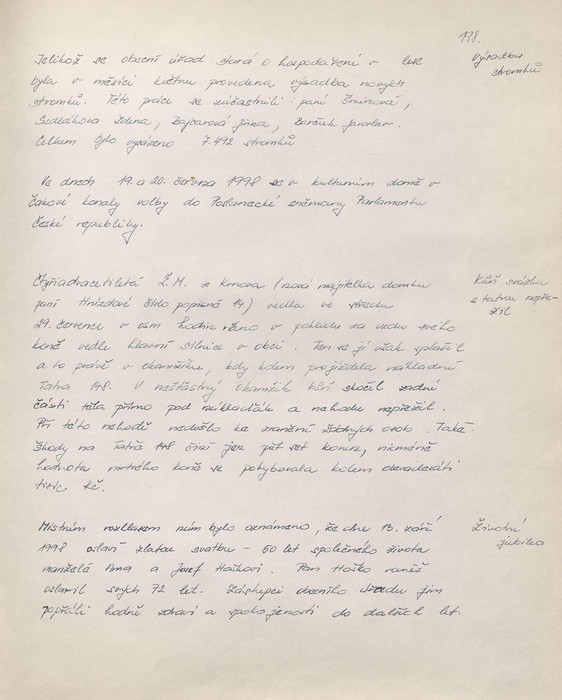 198.
Jelikož se obecní úřad stará o hospodaření v lese
Výsadba
stromků
byla v měsíci květnu provedena výsadba nových
stromků. Této práce se zúčastnili: paní
Sedláčkova Zdena, Jiřina, Jaroslav.
Celkem bylo vysázeno 7.492 stromků
Ve dnech 19. a 20. června 1998 se v kulturním domě v
Čakové konaly volby do Poslanecké sněmovny Parlamentu
České republiky.
Čtyřiadvacetiletá Ž.M. z Krnova (nová majitelka domku
Kůň srážku
s tatrou nepře-
žil
paní Hnízdové číslo popisné 14) vedla ve středu
29. července v osm hodin ráno v poklidu za uzdu svého
koně vedle hlavní silnice v obci. Ten se jí však splašil
a to právě v okamžiku, kdy kolem projížděla nákladní
Tatra 148. V nešťastný okamžik kůň skočil zadní
částí těla přímo pod náklaďák a nehodu nepřežil.
Při této nehodě nedošlo ke zranění žádných osob. Také
škody na Tatře 148 činí jen pět set korun, nicméně
hodnota mrtvého koně se pohybovala kolem devadesáti
tisíc Kč.
Místním rozhlasem nám bylo oznámeno, že dne 13. září
Životní
jubilea
1998 oslaví zlatou svatbu – 50 let společného života
manželé Anna a Josef Haškovi. Pan Haško rovněž
oslavil svých 72 let. Zástupci obecního úřadu jim
popřáli hodně zdraví a spokojenosti do dalších let.